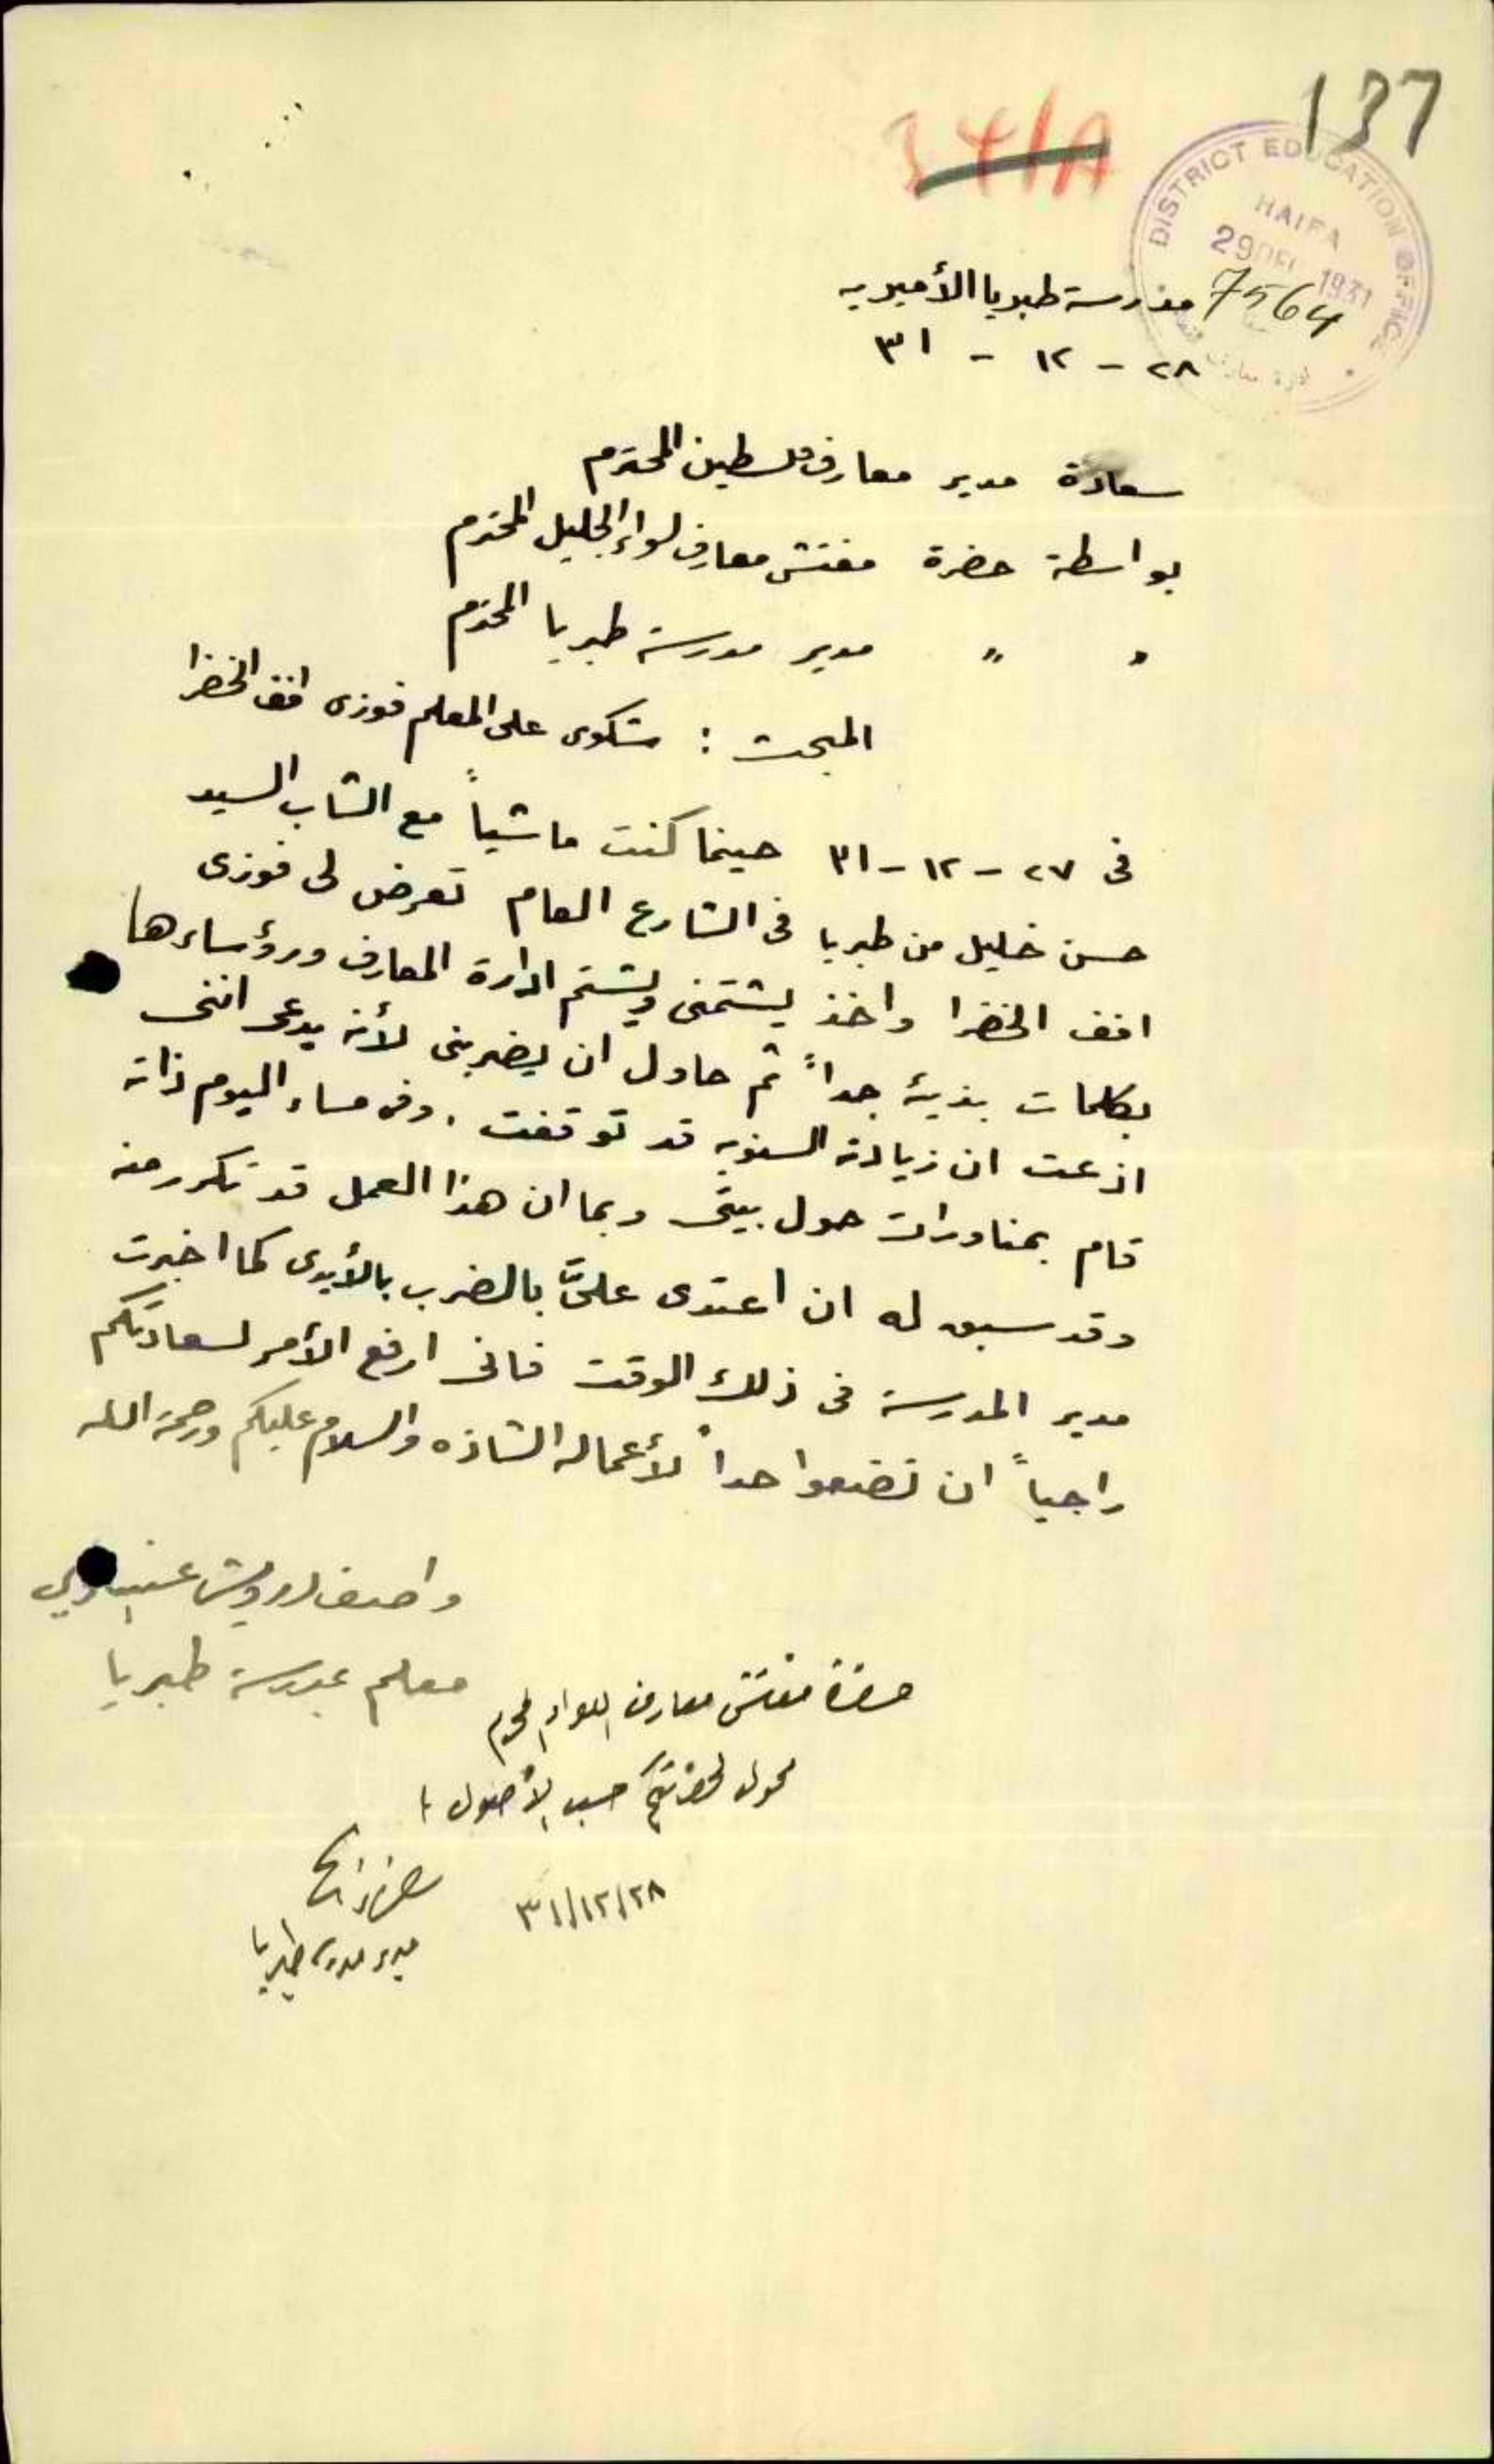 137
141A
DISTRICT EDUCATION OFFICE
HAIFA
29 DEC 1931
7564
مدرسة طبريا الأميريه
٢٨ - ١٢ - ٣١
سعادة مدير معارف فلسطين المحترم
بواسطة حضرة مفتش معارف لواء الجليل المحترم
" " مدير مدرسة طبريا المحترم
المبحث : شكوى على المعلم فوزى افف الخضرا
فى ٢٧ - ١٢ - ٣١ حينما كنت ماشياً مع الشاب السيد
حسن خليل من طبريا فى الشارع العام تعرض لى فوزى
افف الخضرا واخذ يشتمنى ويشتم ادارة المعارف ورؤساءها
بكلمات بذيئة جداً ثم حاول ان يضربنى لأنه يدعى اننى
اذعت ان زيادته السنويه قد توقفت . وفى مساء اليوم ذاته
قام بمناورات حول بيتى وبما ان هذا العمل قد تكرر منه
وقد سبق له ان اعتدى علىَّ بالضرب بالأيدى كما اخبرت
مدير المدرسة فى ذلك الوقت فانى ارفع الأمر لسعادتكم
راجياً ان تضعوا حداً لأعماله الشاذه والسلام عليكم ورحمة الله
واصف درويش عنبتاوي
معلم بمدرسة طبريا
حضرة مفتش معارف اللواء المحترم
محول لحضرتكم حسب الأصول
٣١/١٢/٢٨
مدير مدرسة طبريا